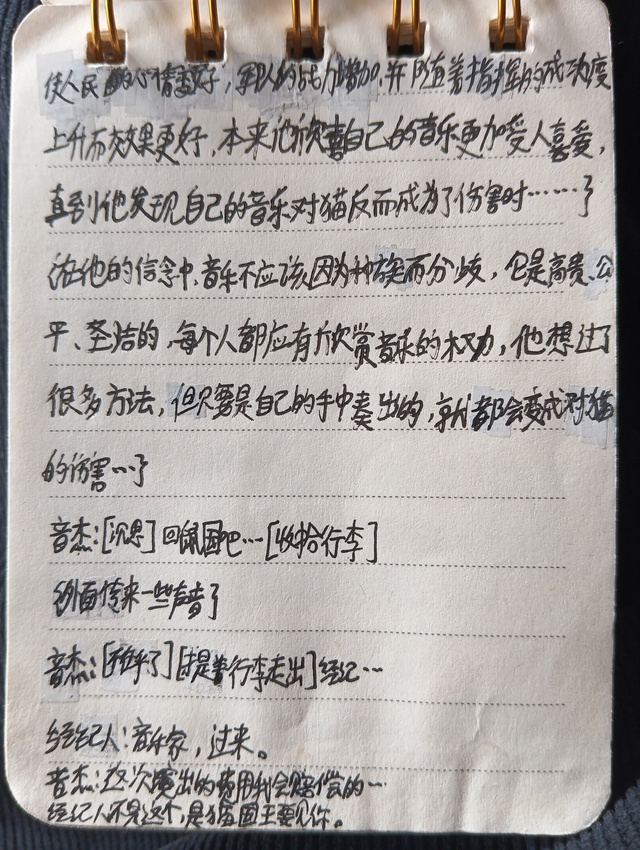 使人民的心情变好，军人的战力增加，并随着指挥的成功度
上升而效果更好，本来他欣喜自己的音乐更加受人喜爱，
直到他发现自己的音乐对猫反而成为了伤害时……了
在他的信念中，音乐不应该因为种族而分歧，它是高贵、公
平、圣洁的，每个人都应有欣赏音乐的权力，他想过了
很多方法，但只要是自己的手中奏出的，就都会变成对猫
的伤害…了
音杰：[沉思]回鼠国吧…[收拾行李]
外面传来一些声音了
音杰：[推了][提着行李走出]经纪…
经纪人：音乐家，过来。
音杰：这次演出的费用我会赔偿的…
经纪人不是这个，是猫国王要见你。